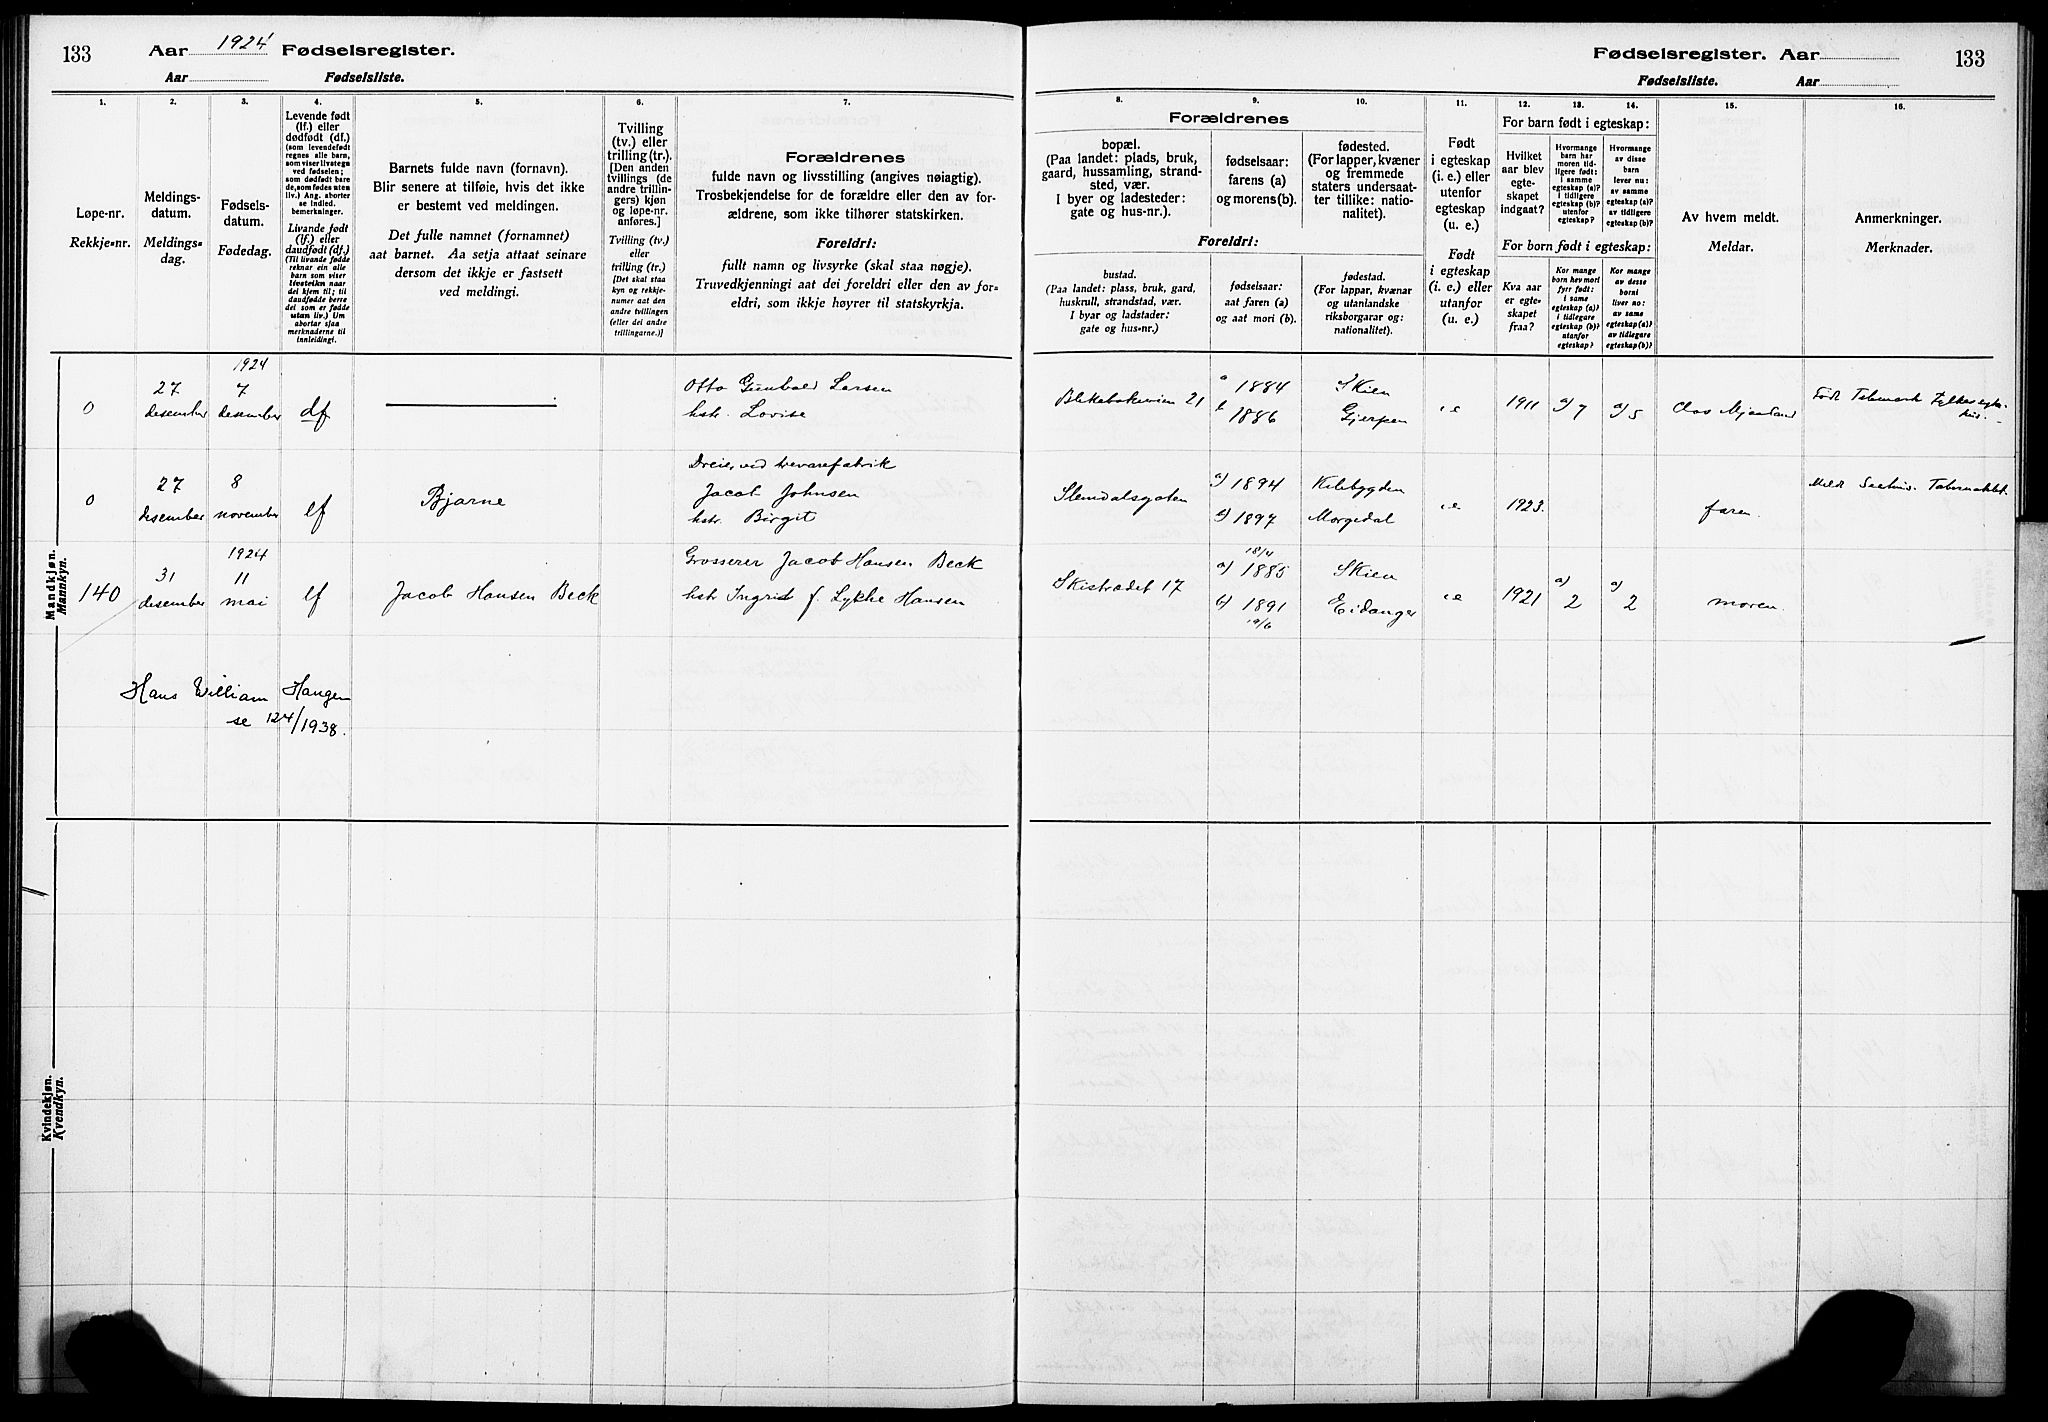 133 Aar 1924 Fødselsregister.
Aar Fødselsliste.
1. 2. 3. 4. 5. 6. 7.
Løpe-nr.
Rekkje-nr.
Meldings-
datum.
Meldings-
dag.
Fødsels-
datum.
Fødedag.
Levende født
(lf.) eller
dødfødt (df.)
(som levendefødt
regnes alle barn,
som viser livstegn
ved fødselen;
som dødfødt bare
de, som fødes uten
liv.) Ang. aborter
se indled.
bemerkninger.
Livande født
(lf.) eller
daudfødt (df.)
(Til livande fødde
reknar ein alle
barn som viser
livsteikn naar
dei kjem til; til
daudfødde berre
dei som er fødde
utan liv.) Um
abortar sjaa
merknaderne til
innleidingi.
Barnets fulde navn (fornavn).
Blir senere at tilføie, hvis det ikke
er bestemt ved meldingen.
Det fulle namnet (fornamnet)
aat barnet. Aa setja attaat seinare
dersom det ikkje er fastsett
ved meldingi.
Tvilling
(tv.) eller
trilling (tr.).
[Den anden
tvillings (de
andre trillin-
gers) kjøn
og løpe-nr.
anføres.]
Tvilling (tv.)
eller
trilling (tr.)
[Det skal staa
kyn og rekkje-
numer aat den
andre tvillingen
(eller dei andre
trillingarne.)]
Forældrenes
fulde navn og livsstilling (angives nøiagtig).
Trosbekjendelse for de forældre eller den av for-
ældrene, som ikke tilhører statskirken.
Foreldri:
fullt namn og livsyrke (skal staa nøgje).
Truvedkjenningi aat dei foreldri eller den av for-
eldri, som ikkje høyrer til statskyrkja.
Mandkjøn.
Mannkyn.
0
27
desember
1924
7
desember
df
Otto Gunbald Larsen
hstr. Lovise
0
27
desember
8
november
lf
Bjarne
Dreier ved trevarefabrik
Jacob Johnsen
hstr. Birgit
140
31
desember
1924
11
mai
lf
Jacob Hansen Beck
Grosserer Jacob Hansen Beck
hstr Ingrid f. Lykke Hansen
Hans William Haugen
se 124/1938.
Kvindekjøn.
Kvendkyn.
Fødselsregister. Aar 133
Fødselsliste. Aar
8. 9. 10. 11. 12. 13. 14. 15. 16.
Forældrenes
bopæl.
(Paa landet: plads, bruk,
gaard, hussamling, strand-
sted, vær.
I byer og ladesteder:
gate og hus-nr.).
fødselsaar:
farens (a)
og morens(b).
fødested.
(For lapper, kvæner
og fremmede
staters undersaat-
ter tillike: natio-
nalitet).
Foreldri:
bustad.
(Paa landet: plass, bruk, gard,
huskrull, strandstad, vær.
I byar og ladstader:
gate og hus-nr.)
fødselsaar:
aat faren (a)
og aat mori (b).
fødestad.
(For lappar, kvænar
og utanlandske
riksborgarar og:
nationalitet).
Født
i egteskap
(i. e.) eller
utenfor
egteskap
(u. e.)
Født
i egteskap
(i. e.) eller
utanfor
(u. e.)
For barn født i egteskap:
Hvilket
aar blev
egte-
skapet
indgaat?
Hvormange
barn har
moren tid-
ligere født:
i samme
egteskap (a)?
i tidligere
egteskap (b)?
utenfor
egteskap?
Hvormange
av disse
barn
lever nu:
av samme
egteskap (a)?
av tidligere
egteskap (b)?
For born født i egteskap:
Kva aar
er egte-
skapet
fraa?
Kor mange
born hev mori
fyrr født:
i same
egteskap (a)?
i tidlegare
egteskap (b)?
utanfor
egteskap?
Kor mange
av desse
borni
liver no:
av same
egteskap (a)?
av tidlegare
egteskap (b)?
Av hvem meldt.
Meldar.
Anmerkninger.
Merknader.
21
a 1884
b 1886
Skien
Gjerpen
i e
1911
a) 7
a) 5
Født Telemark Fylkes
hus.
Slemdalsgaten
a) 1894
b) 1897
Kilebygden
Morgedal
i e
1923.
faren.
Skistrædet 17
18/4
a) 1885
b) 1891
19/6
Skien
Eidanger
i e
1921
a)
2
a)
2
moren.